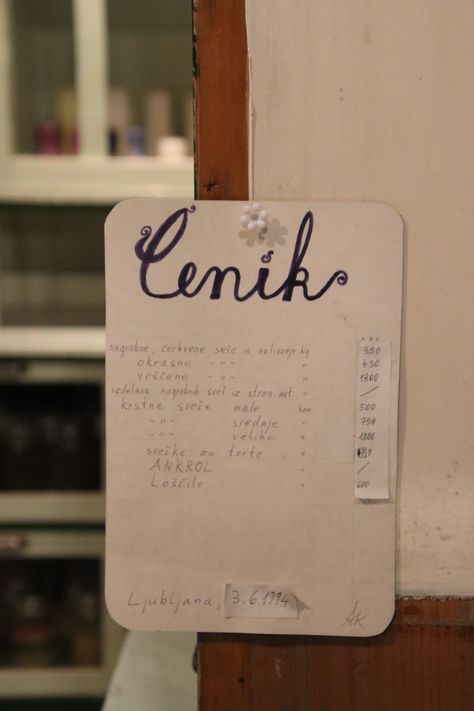 Cenik
nagrobne, cerkvene sveče in nalivanje kg 350
okrasne -"- " 430
voščene -"- " 1800
izdelava nagrobnih sveč iz stran. mat. " /
krstne sveče male kom 500
-"- srednje " 750
-"- velike " 1000
svečke za torto "
ANKROL " /
Loščilo " 600
Ljubljana, 3.6.1994